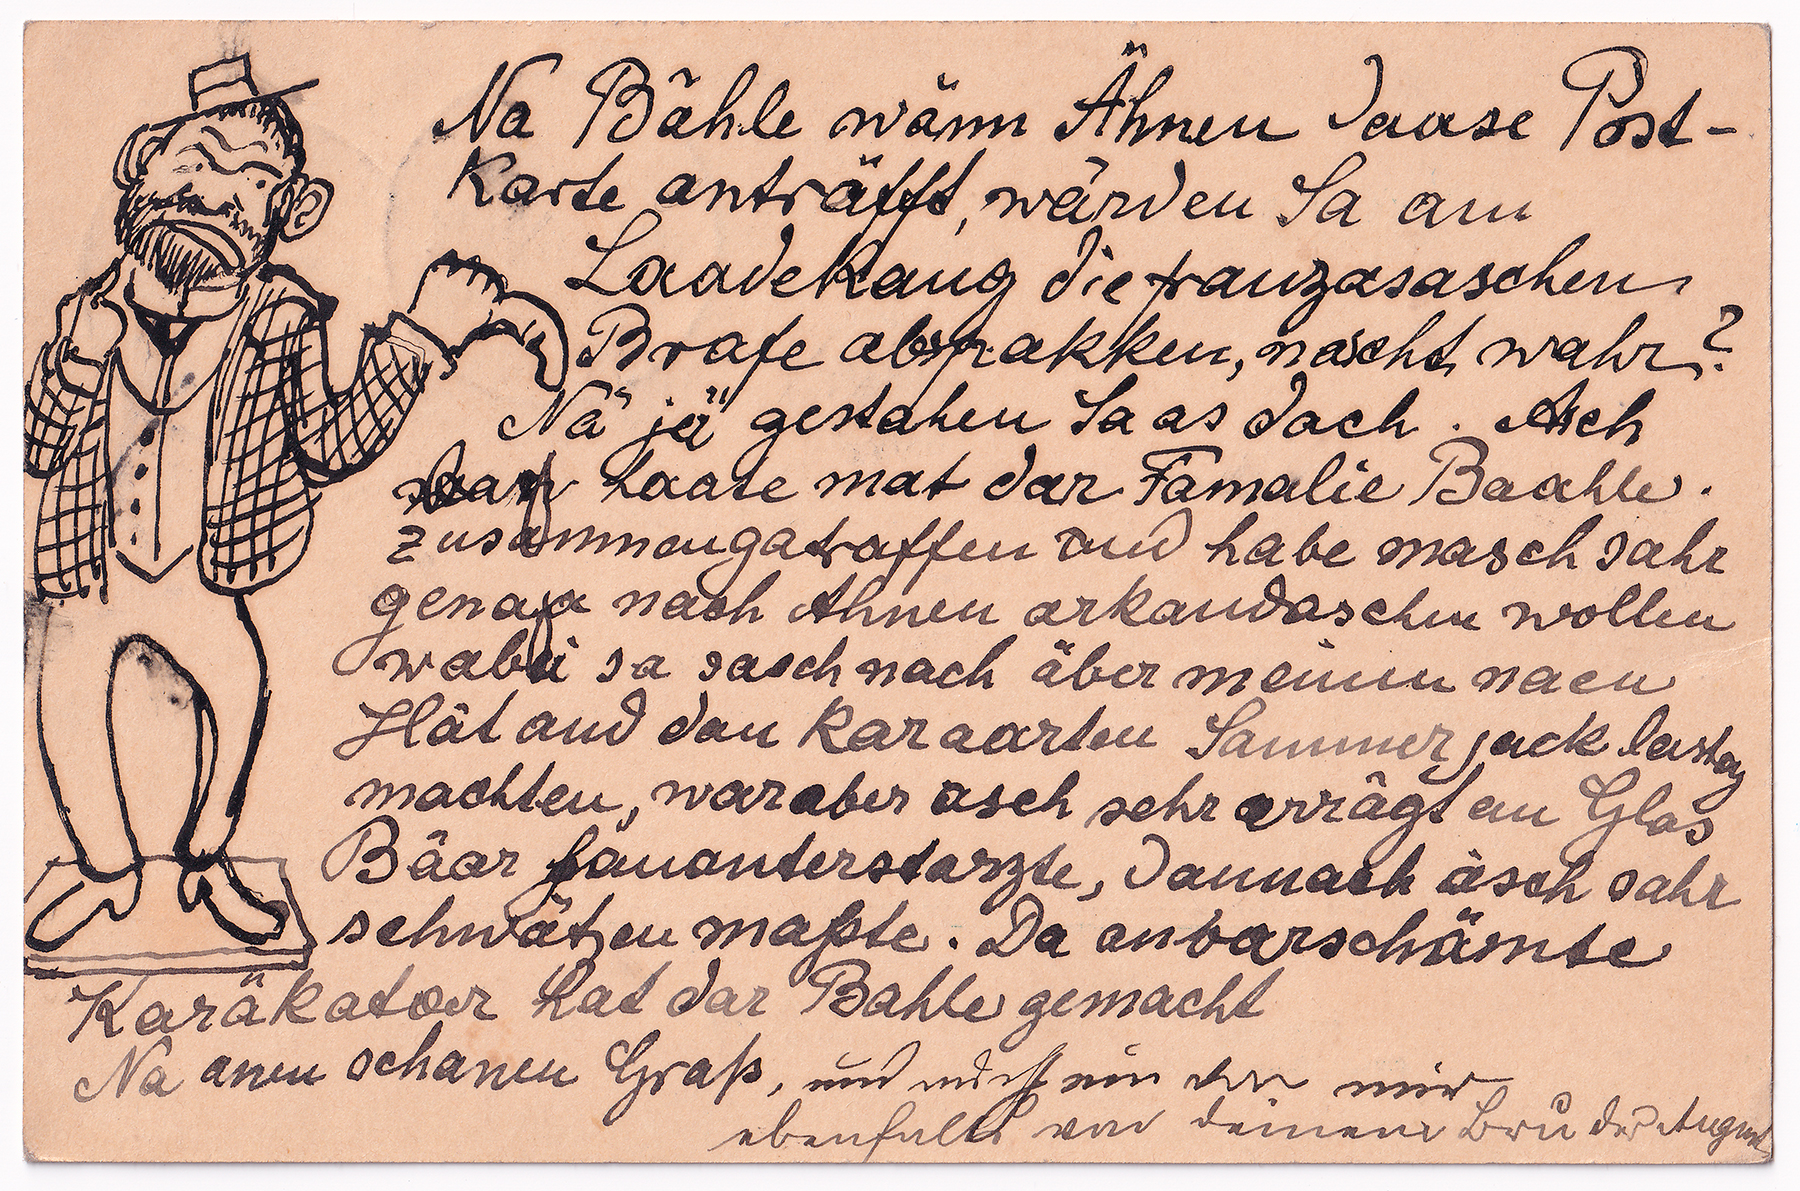 Na Bähle wänn Ähnen daase Post-
karte anträfft, wärden Sa am
Laadekaug die franzasaschen
Brafe abspakken, nascht wahr?
Nä jä gestahen Sa as dach. Asch
harf haate mat dar Famalie Baahle.
zusammengatraffen und habe masch sahr
genaa nach Ahnen arkandaschen wollen
wabei sa sasch nach äber meinen naen
Hät and dan karaarten Sammerjack lastag
machten, waraber asch sehr arrägt an Glas
Bäar hananterstarzte, dannach äsch sahr
schwätzen maßte. Da anvarschämte
Karäkatoer hat dar Bahle gemacht
Na anen schanen Graß, und nicht nur von mir
ebenfalls von deinem Bruder August